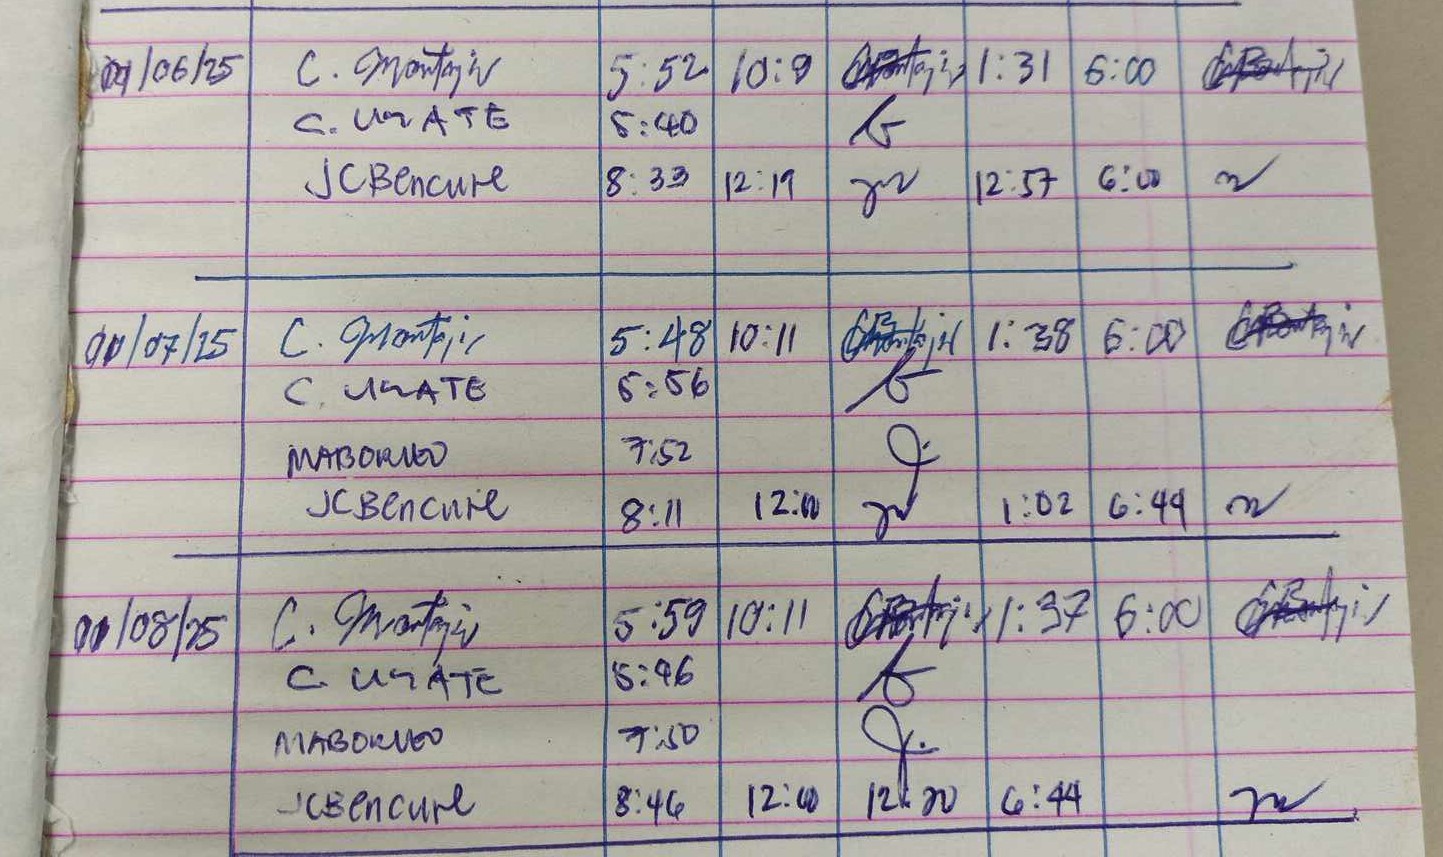 /06/25 C. Montajis 5:52 10:9 1:31 6:00
C. UZATE 5:40
JCBencure 8:33 12:19 12:57 6:00
01/07/25 C. Montajis 5:48 10:11 1:38 6:00
C. UZATE 5:56
MABORNEO 7:52
JCBencure 8:11 12:00 1:02 6:44
01/08/25 C. Montajis 5:59 10:11 1:37 6:00
C. UZATE 5:46
MABORNEO 7:50
JCBencure 8:46 12:00 12:20 6:44